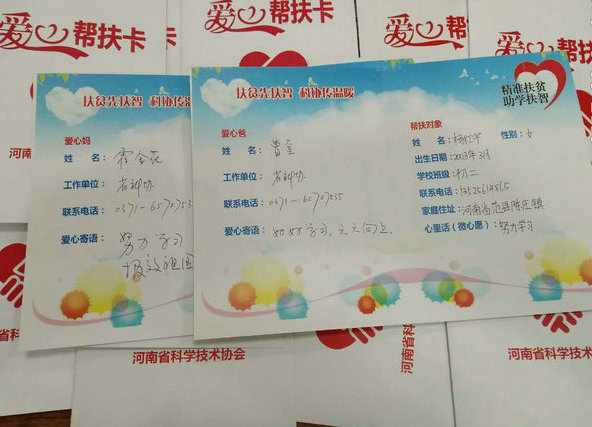 爱心帮扶卡
帮扶卡
爱心
扶贫先扶智 科协传温暖
爱心妈
姓 名：霍金花
工作单位：省科协
联系电话：0371-65707535
爱心寄语：努力学习
报效祖国
扶贫先扶智 科协传温暖
精准扶贫
助学扶智
爱心爸
姓 名：曹奎
工作单位：省科协
联系电话：0371-65707535
爱心寄语：好好学习，天天向上.
帮扶对象
姓 名： 性别：女
出生日期：2003年3月
学校班级：初二
联系电话：13525614565
家庭住址：河南省范县陈庄镇
心里话（微心愿）：努力学习
河南省
河南省科学技术协会
河南省科
河南省科学技术